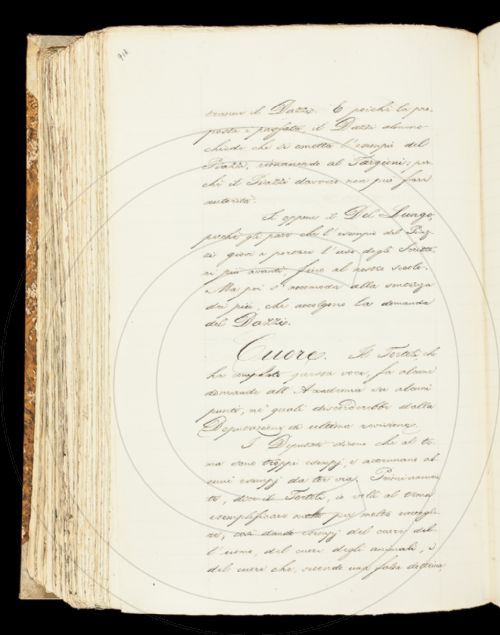 912
tranne il Dazzi. E poichè la pro-
posta è pagata, il Dazzi almeno
chiede che si ometta l'esempio del
Piazzi, rimanendo al Targioni; per-
chè il Piazzi davvero non può fare
autorità.
Si oppone il Del Lungo,
perchè gli pare che l'esempio del Piaz-
zi giovi a portare l'uso degli Scritto-
ri più avanti fino al nostro secolo.
Ma poi s'accomoda alla sentenza
dei più, che accolgono la domanda
del Dazzi.
Cuore. Il Tortoli, che
ha compilato questa voce, fa alcune
domande all'Accademia su alcuni
punti, ne' quali discorderebbe dalla
Deputazione di ultima revisione.
I Deputati dicono che al te-
ma sono troppi esempj, e accennano al-
cuni esempj da tor via. Primieramen-
te, dice il Tortoli, io volli al tema
esemplificare molto per molte
dando esempj del cuore del-
l'uomo, del cuore degli animali, e
del cuore che, secondo una falsa dottrina,